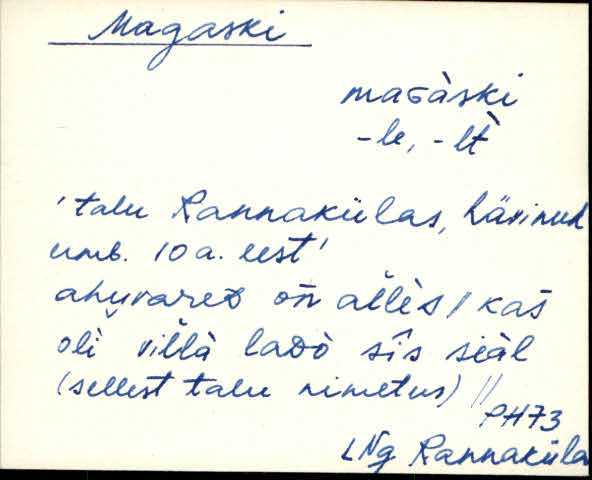 Magaski
maɢàski
-le, -lt̀
'talu Rannakülas, hävinud
umb. 10 a. eest'
ahuvareᴅ on al̆lès / kas
oli vil̆là laᴅò sīs siäl
(sellest talu nimetus) //
PH73
LNg Rannaküla